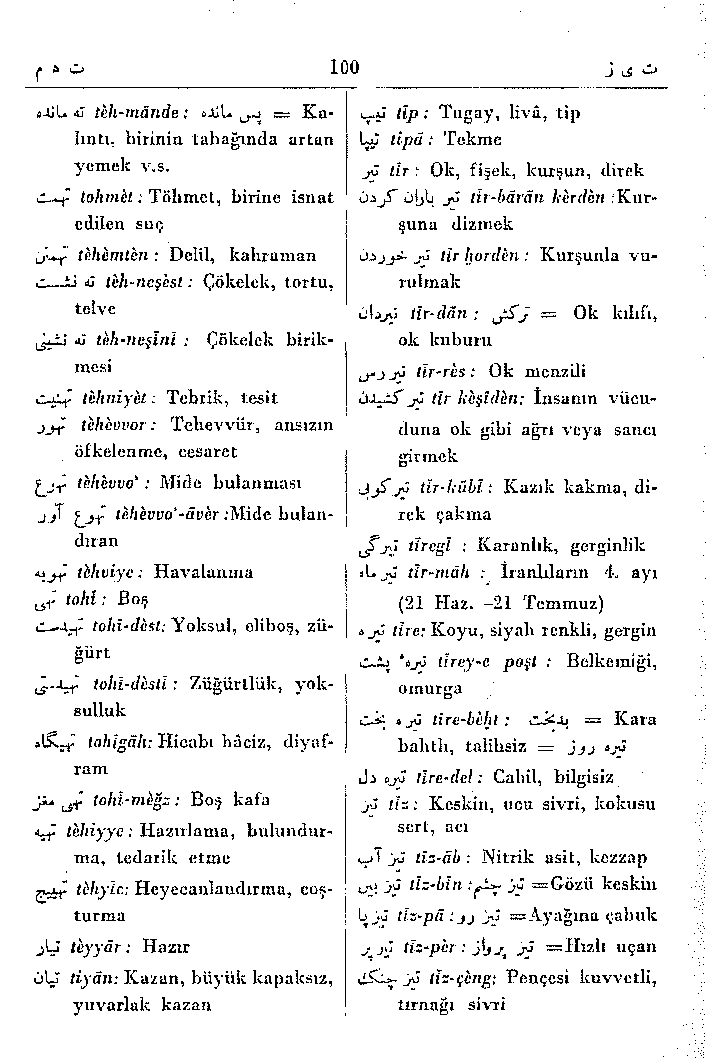 ت ه م
100
ت ی ز
ته مانده tèh-mānde : پس مانده = Ka-
lıntı, birinin tabağında artan
yemek v.s.
تهمت tohmèt : Töhmet, birine isnat
edilen suç
تهمتن tèhèmtèn : Delil, kahraman
ته نشست tèh-neşèst : Çökelek, tortu,
telve
ته نشینی tèh-neşīnī : Çökelek birik-
mesi
تهنیت tèhniyèt : Tebrik, tesit
تهور tèhèvvor : Tehevvür, ansızın
öfkelenme, cesaret
تهوع tèhèvvo' : Mide bulanması
تهوع آور tèhèvvo'-āvèr :Mide bulan-
dıran
تهویه tèhviye : Havalanma
تهی tohī : Boş
تهیدست tohī-dèst: Yoksul, eliboş, zü-
ğürt
تهیدستی tohī-dèstī : Züğürtlük, yok-
sulluk
تهیگاه tohīgāh: Hicabı hâciz, diyaf-
ram
تهی مغز tohī-mèğz : Boş kafa
تهیه tèhiyye : Hazırlama, bulundur-
ma, tedarik etme
تهییج tèhyīc: Heyecanlandırma, coş-
turma
تیار tèyyār : Hazır
تیان tiyān: Kazan, büyük kapaksız,
yuvarlak kazan
تیپ tīp : Tugay, livâ, tip
تیپا tīpā : Tekme
تیر tīr : Ok, fişek, kurşun, direk
تیر باران کردن tīr-bārān kèrdèn :Kur-
şuna dizmek
تیر خوردن tīr ḫordèn : Kurşunla vu-
rulmak
تیردان tīr-dān : ترکش = Ok kılıfı,
ok kuburu
تیررس tīr-rès : Ok menzili
تیر کشیدن tīr kèşīdèn: İnsanın vücu-
duna ok gibi ağrı veya sancı
girmek
تیرکوبی tīr-kūbī : Kazık kakma, di-
rek çakma
تیرگی tīregī : Karanlık, gerginlik
تیرماه tīr-māh : İranlıların 4. ayı
(21 Haz. –21 Temmuz)
تیره tīre: Koyu, siyah renkli, gergin
تیرهٔ پشت tīrey-e poşt : Belkemiği,
omurga
تیره بخت tīre-bèḫt : بدبخت = Kara
bahtlı, talihsiz = تیره روز
تیره دل tīre-del : Cahil, bilgisiz
تیز tīz : Keskin, ucu sivri, kokusu
sert, acı
تیز آب tīz-āb : Nitrik asit, kezzap
تیز بین tīz-bīn : تیز چشم =Gözü keskin
تیزپا tīz-pā : تیز رو =Ayağına çabuk
تیزپر tīz-pèr : تیز پرواز =Hızlı uçan
تیز چنگ tīz-çèng: Pençesi kuvvetli,
tırnağı sivri